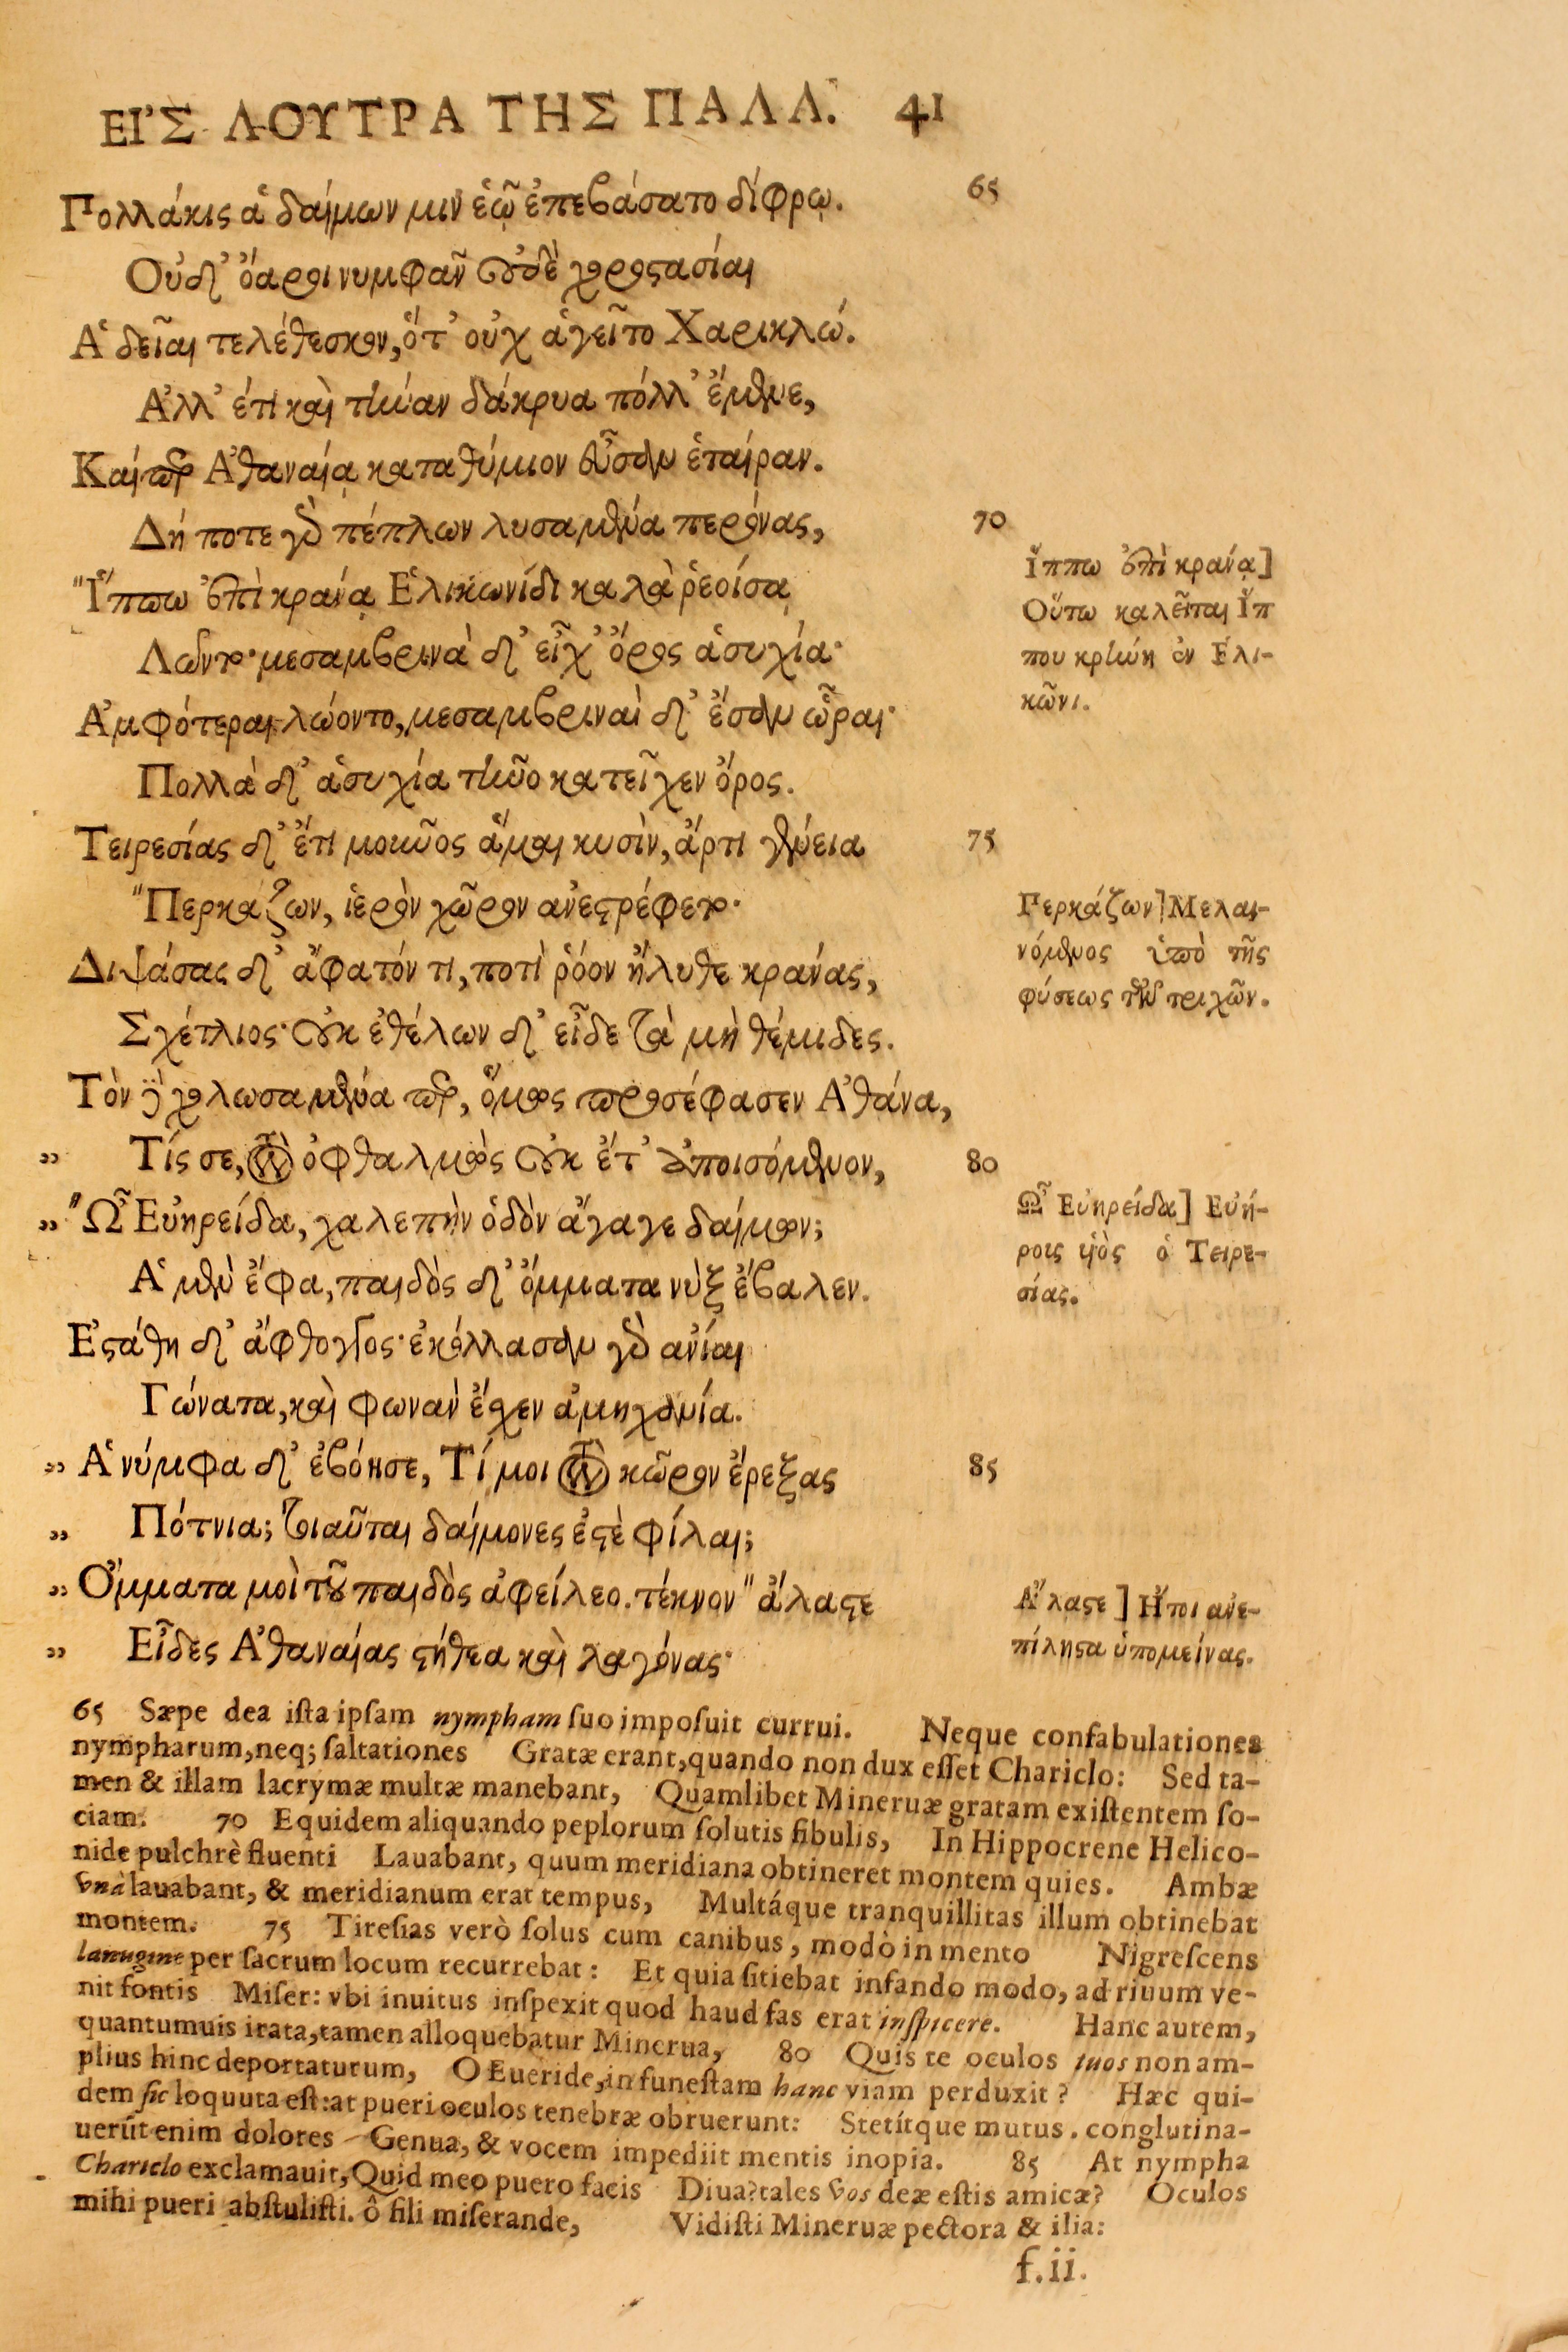 ΕΙ'Σ ΛΟΥΤΡΑ ΤΗΣ ΠΑΛΛ. 41
Πολλάκις ἁ δαίμων μιν ἑῷ ἐπεβάσατο δίφρῳ. 65
Οὐδ' ὄαροι νυμφᾶν οὐδὲ χοροστασίαι
Ἁδεῖαι τελέθεσκον, ὅτ' οὐχ ἁγεῖτο Χαρικλώ.
Ἀλλ' ἔτι καὶ τήναν δάκρυα πόλλ' ἔμενε,
Καίπερ Ἀθαναίᾳ καταθύμιον εὖσαν ἑταίραν.
Δή ποτε γὰρ πέπλων λυσαμένα περόνας, 70
"Ἵππω ἐπὶ κρανίᾳ Ἑλικωνίδι καλὰ ῥεοίσᾳ
Λῶντο· μεσαμβρινὰ δ' εἶχ' ὄρος ἁσυχία·
Ἀμφότεραι λώοντο, μεσαμβριναὶ δ' ἔσαν ὧραι·
Πολλὰ δ' ἁσυχία τῆνο κατεῖχεν ὄρος.
Τειρεσίας δ' ἔτι μοῦνος ἅμαι κυσὶν, ἄρτι γένεια 75
"Περκάζων, ἱερὸν χῶρον ἀνεστρέφετο·
Διψάσας δ' ἄφατόν τι, ποτὶ ῥόον ἤλυθε κράνας,
Σχέτλιος· οὐκ ἐθέλων δ' εἶδε τὰ μὴ θέμιδες.
Τὸν δὲ χολωσαμένα περ, ὅμως προσέφασεν Ἀθάνα,
„ Τίς σε, τὸν ὀφθαλμοὺς οὐκ ἔτ' ἀποισόμενον, 80
„ "Ὦ Εὐηρείδα, χαλεπὴν ὁδὸν ἄγαγε δαίμων;
Ἁ μὲν ἔφα, παιδὸς δ' ὄμματα νὺξ ἔβαλεν.
Ἐστάθη δ' ἄφθογγος· ἐκόλλασαν γὰρ ἀνίαι
Γώνατα, καὶ φωνὰν ἔσχεν ἀμηχανία.
„ Ἁ νύμφα δ' ἐβόησε, Τί μοι τὸν κῶρον ἔρεξας 85
„ Πότνια; τοιαῦται δαίμονες ἐστὲ φίλαι;
„ Ὄμματα μοὶ τοῦ παιδὸς ἀφείλεο. τέκνον "ἄλαστε
„ Εἶδες Ἀθαναίας στήθεα καὶ λαγόνας·
Ἵππω ἐπὶ κρανίᾳ]
Οὕτω καλεῖται Ἵπ
που κρήνη ἐν Ἑλι-
κῶνι.
Περκάζων] Μελαι-
νόμενος ὑπὸ τῆς
φύσεως τῶν τριχῶν.
Ὦ Εὐηρείδα] Εὐή-
ρους υἱὸς ὁ Τειρε-
σίας.
Ἄλαστε] Ἤτοι ἀνε-
πίληστα ὑπομείνας.
65 Sæpe dea iſta ipſam nympham ſuo impoſuit currui. Neque confabulationes
nympharum, neq; ſaltationes Gratæ erant, quando non dux eſſet Chariclo: Sed ta-
men & illam lacrymæ multæ manebant, Quamlibet Mineruæ gratam exiſtentem ſo-
ciam. 70 Equidem aliquando peplorum ſolutis fibulis, In Hippocrene Helico-
nide pulchrè fluenti Lauabant, quum meridiana obtineret montem quies. Ambæ
vnà lauabant, & meridianum erat tempus, Multáque tranquillitas illum obtinebat
montem. 75 Tireſias verò ſolus cum canibus, modò in mento Nigreſcens
lanugine per ſacrum locum recurrebat: Et quia ſitiebat infando modo, ad riuum ve-
nit fontis Miſer: vbi inuitus inſpexit quod haud fas erat inſpicere. Hanc autem,
quantumuis irata, tamen alloquebatur Minerua, 80 Quis te oculos tuos non am-
plius hinc deportaturum, O Eueride, in funeſtam hanc viam perduxit? Hæc qui-
dem ſic loquuta eſt: at pueri oculos tenebræ obruerunt: Stetítque mutus. conglutina-
uerūt enim dolores Genua, & vocem impediit mentis inopia. 85 At nympha
Chariclo exclamauit, Quid meo puero facis Diua? tales vos deæ eſtis amicæ? Oculos
mihi pueri abſtuliſti. ô fili miſerande, Vidiſti Mineruæ pectora & ilia:
f.ii.